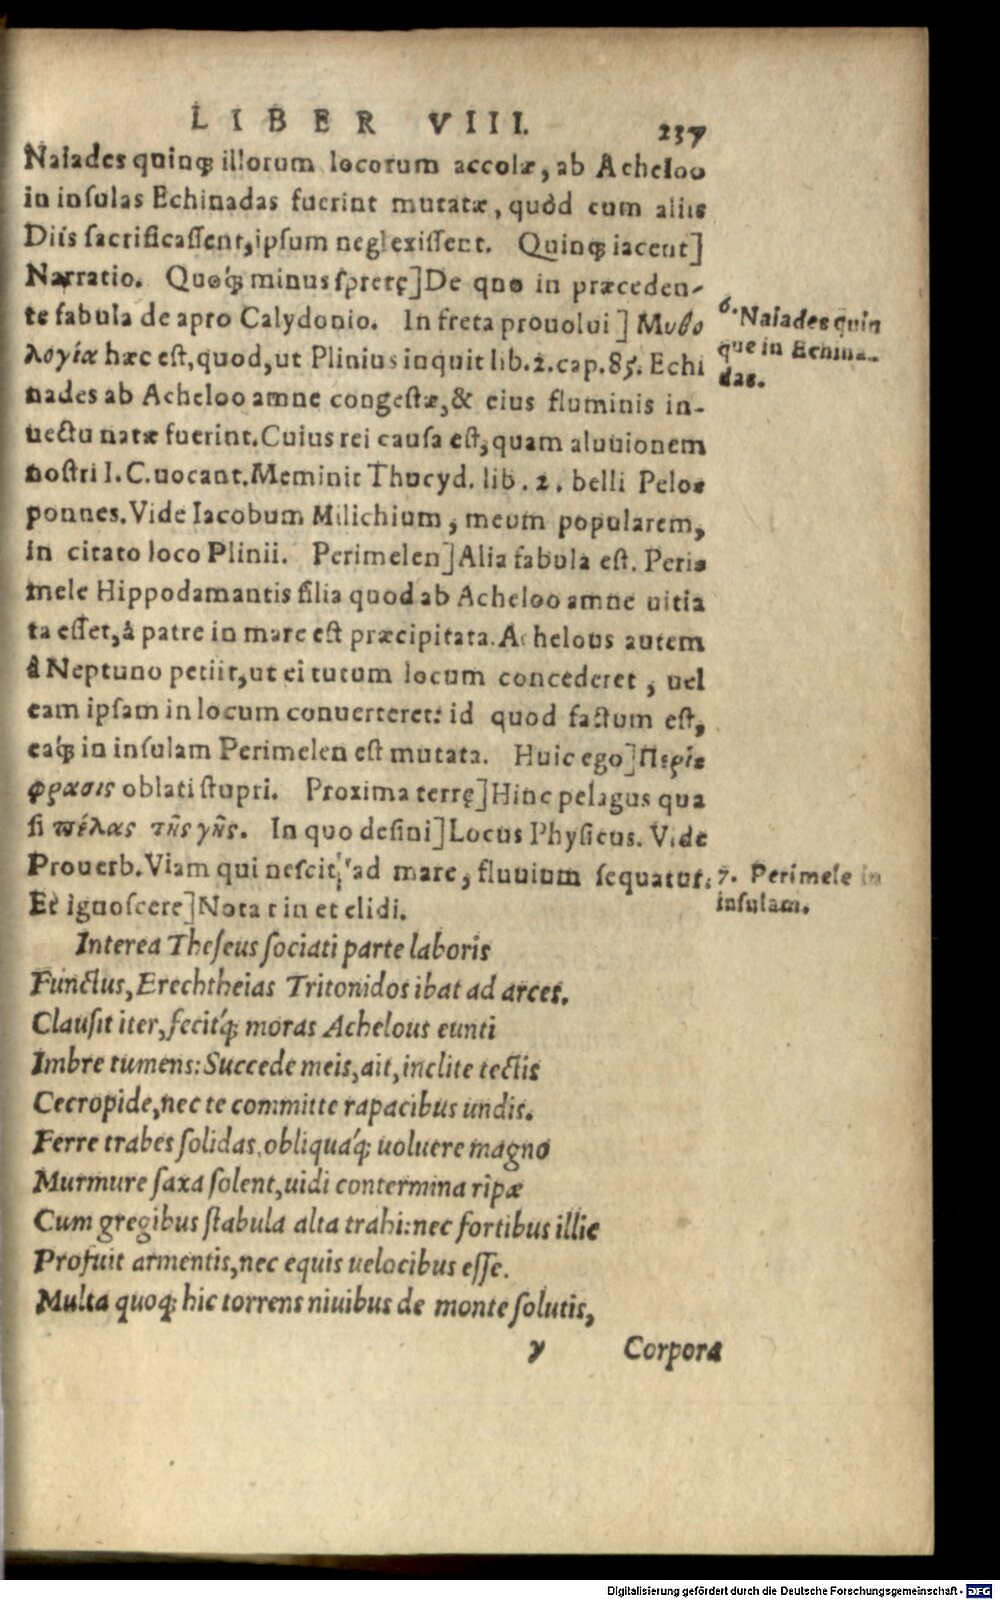 LIBER VIII. 237
Naiades quinq; illorum locorum accolæ, ab Acheloo
in insulas Echinadas fuerint mutatæ, quòd cum aliis
Diis sacrificassent, ipsum neglexissent. Quinq; iacent]
Narratio. Quoq́; minus spretę] De quo in præceden-
te fabula de apro Calydonio. In freta prouolui] Μυθο
λογία hæc est, quod, ut Plinius inquit lib. 2. cap. 85. Echi
nades ab Acheloo amne congestæ, & eius fluminis in-
uectu natæ fuerint. Cuius rei causa est, quam aluuionem
nostri I. C. uocant. Meminit Thucyd. lib. 2. belli Pelo-
ponnes. Vide Iacobum Milichium, meum popularem,
in citato loco Plinii. Perimelen] Alia fabula est. Peri-
mele Hippodamantis filia quod ab Acheloo amne uitia
ta esset, à patre in mare est præcipitata. Achelous autem
â Neptuno petiit, ut ei tutum locum concederet, uel
eam ipsam in locum conuerteret: id quod factum est,
eaq́; in insulam Perimelen est mutata. Huic ego] Περί-
φρασις oblati stupri. Proxima terrę] Hinc pelagus qua
si πέλας τῆς γῆς. In quo desini] Locus Physicus. Vide
Prouerb. Viam qui nescit, ad mare, fluuium sequatur.
Et ignoscere] Nota t in et elidi.
6. Naiades quin
que in Echina-
das.
7. Perimele in
insulam.
Interea Theseus sociati parte laboris
Functus, Erechtheias Tritonidos ibat ad arces.
Clausit iter, fecitq́; moras Achelous eunti
Imbre tumens: Succede meis, ait, inclite tectis
Cecropide, nec te committe rapacibus undis.
Ferre trabes solidas, obliquáq; uoluere magno
Murmure saxa solent, uidi contermina ripæ
Cum gregibus stabula alta trahi: nec fortibus illic
Profuit armentis, nec equis uelocibus esse.
Multa quoq; hic torrens niuibus de monte solutis,
y Corpora
Digitalisierung gefördert durch die Deutsche Forschungsgemeinschaft - DFG